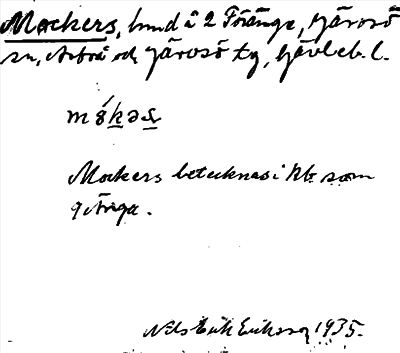 Mackers, hmd å 2 Föränge, Järvsö
sn, Arbrå och Järvsö tg, Gävleb. l.
Mackers betecknas i kb. som
qvänga.
Nils Erik Eriksson 1935.